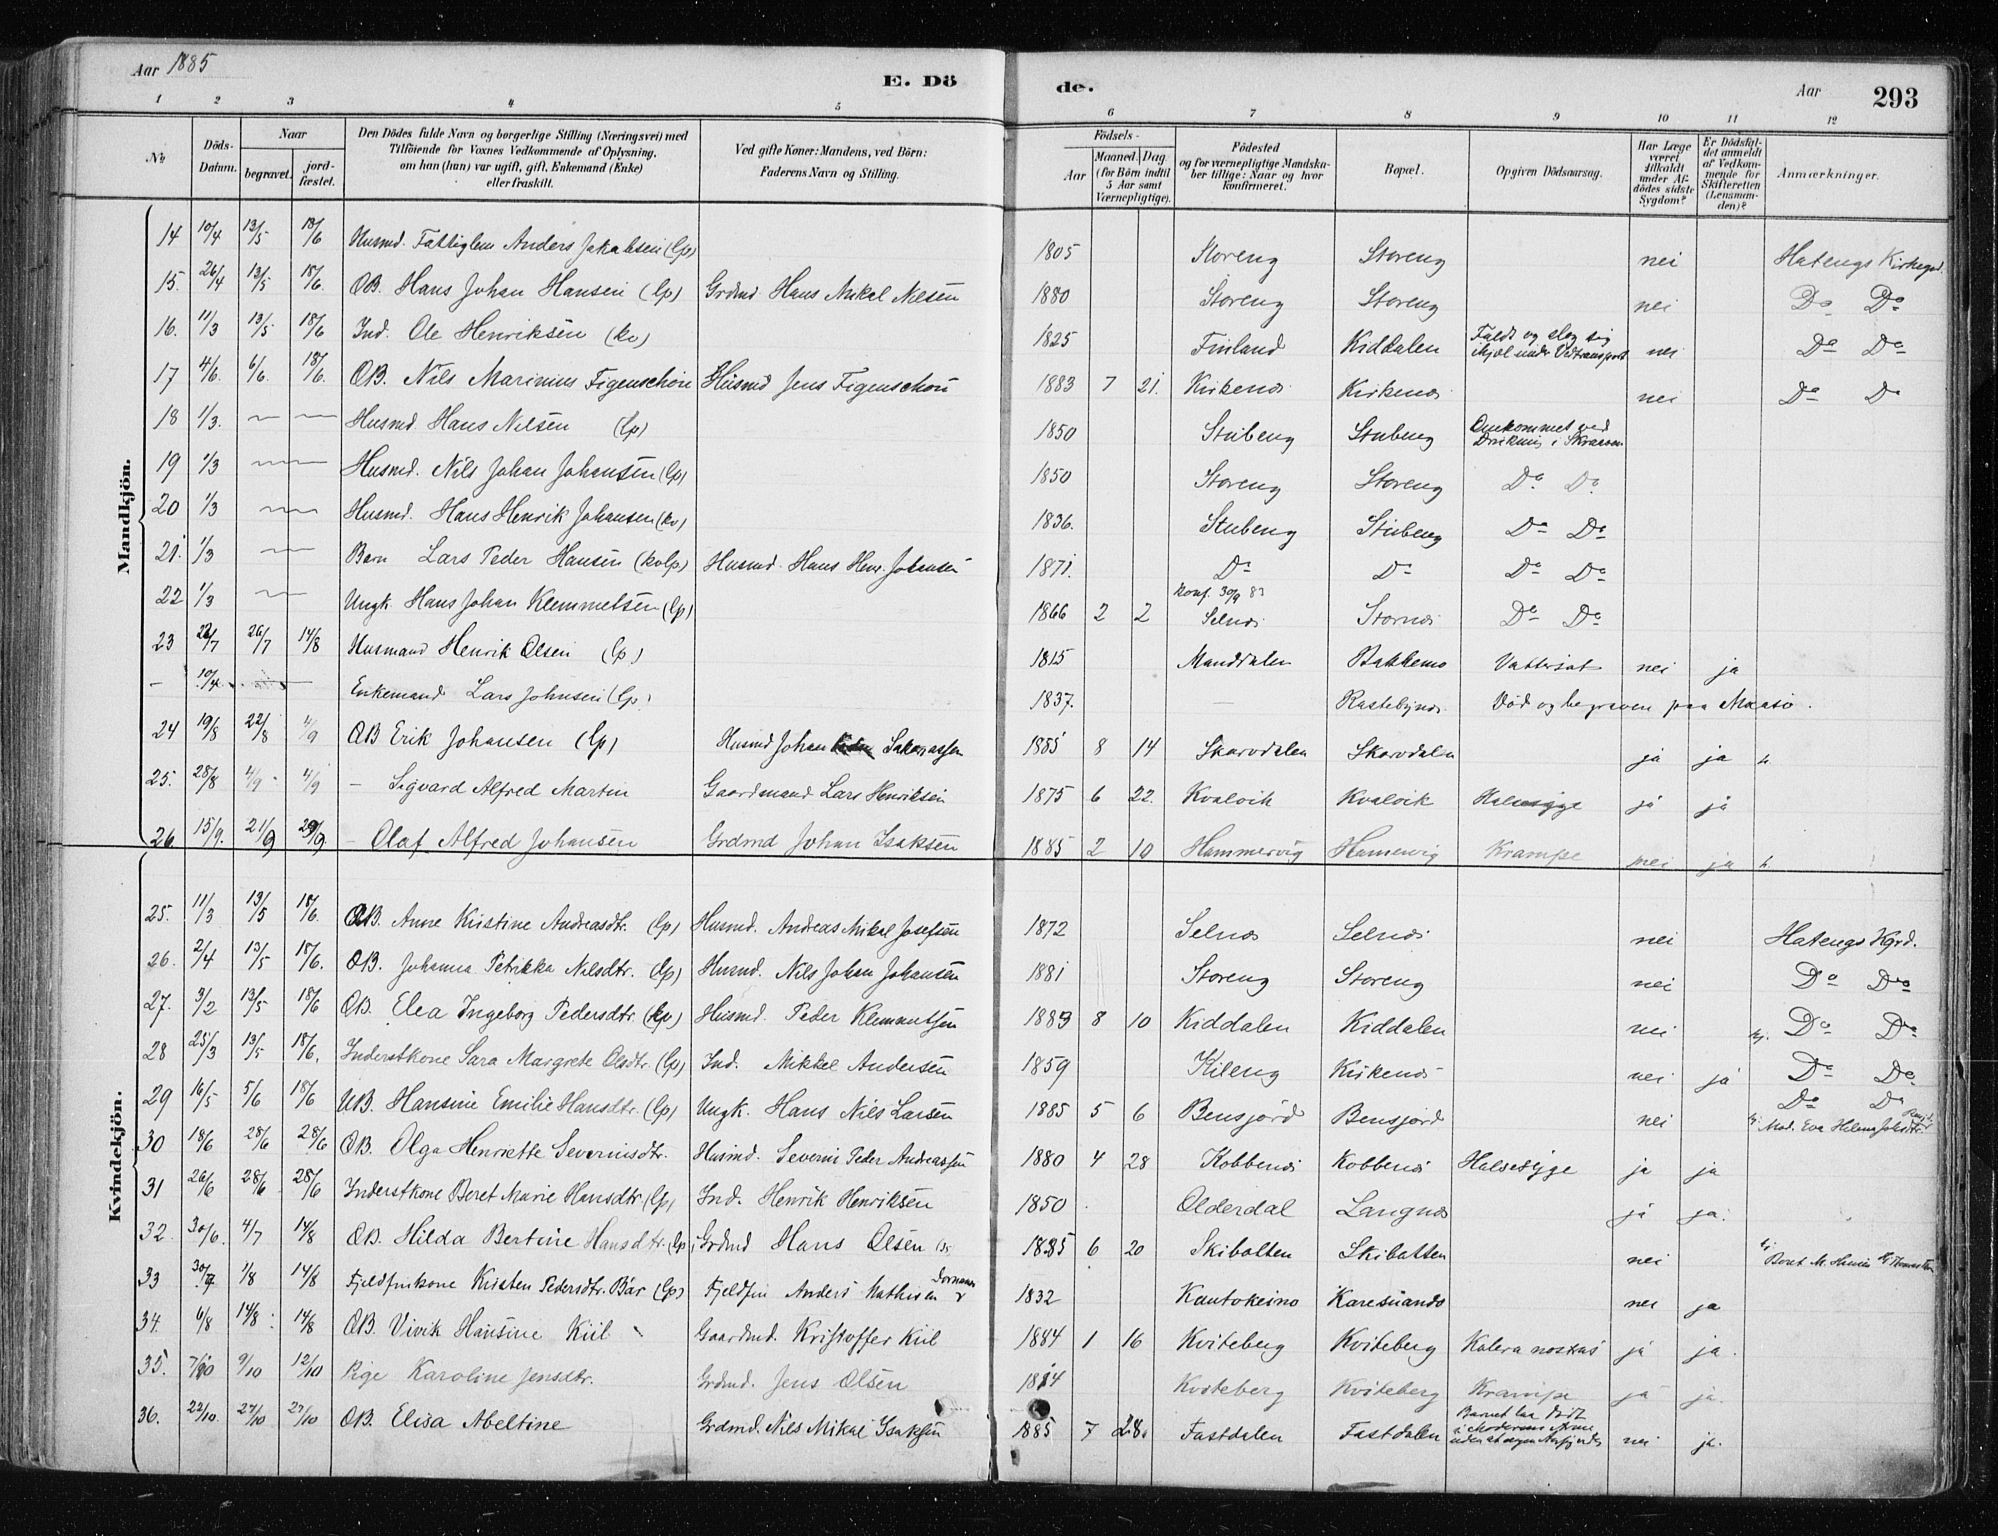 Aar 1885 E. Dö de. Aar 293
1 2 3 4 5 6 7 8 9 10 11 12
No Döds-Datum. Naar begravet. jord-fæstet. Den Dödes fulde Navn og borgerlige Stilling (Næringsvei) med Tilföiende for Voxnes Vedkommende af Oplysning, om han (hun) var ugift, gift, Enkemand (Enke) eller fraskilt. Ved gifte Koner: Mandens, ved Börn: Faderens Navn og Stilling. Födsels- Aar Maaned. Dag. (for Börn indtil 5 Aar samt Værnepligtige). Födested og for værnepligtige Mandskaber tillige: Naar og hvor konfirmeret. Bopæl. Opgiven Dödsaarsag. Har Læge været tilkaldt under Afdödes sidste Sygdom? Er Dödsfaldet anmeldt af Vedkommende for Skifteretten (Lensmanden)? Anmærkninger.
Mandkjön.
14 10/4 13/5 18/6 Husmd. Fattiglem Anders Jakabsen (lp) 1805 Storeng Storeng nei Hatengs Kirkegd.
15. 26/4 13/5 18/6. ÆB. Hans Johan Hansen (lp) Grdmd Hans Mikal Nilsen 1880 Storeng Storeng nei Do Do
16. 11/3 13/5 18/6 Ind. Ole Henriksen (kv) 1825 Finland Kiddalen Faldt og slog sig ihjel under Vedtransport nei Do Do
17 4/6. 6/6. 18/6. ÆB. Nils Marinius Figenschou Husmd Jens Figenschou 1883 7 21. Kirkenes Kirkenes nei Do Do
18 1/3. — — Husmd. Hans Nilsen (lp) 1850 Stubeng Stubeng Omkommet ved Drukning i Skreden
19 1/3 — — Husmd. Nils Johan Johansen (lp) 1850 Storeng Storeng Do Do
20 1/3 — — Husmd. Hans Henrik Johansen (kv) 1836. Stubeng Stubeng Do Do
21. 1/3 — Barn Lars Peder Hansen (kvlp) Husmd. Hans Henr. Johansen 1871. Do Do Do Do
22 1/3 — Ungk. Hans Johan Klemmetsen (lp) 1866 2 2 konf. 30/9 83 Selnes Stornes Do Do
23 22/7 26/7 14/8 Husmand Henrik Olsen (lp) 1815 Manddalen Bakkemo Vattersot nei ja
— 10/4 — Enkemand Lars Johnsen (lp) 1837. — Rastebynes Död og begraven paa Maasö.
24 19/8 22/8 4/9 ÆB Erik Johansen (lp) Husmd Johan Sakariassen 1885 8 14 Skarvdalen Skarvdalen ja ja
25. 28/8 4/9 4/9 — Sigvard Alfred Martin Gaardmand Lars Henriksen 1875 6 22. Kvalvik Kvalvik Halssyge ja ja
26 15/9. 21/9 29/9. — Olaf Alfred Johansen Grdmd Johan Isaksen 1885 2 10 Hammervig Hamervig Krampe nei ja
Kvindekjön.
25. 11/3 13/5 18/6. ÆB. Anne Kistine Andreasdtr. (lp) Husmd. Andreas Mikal Josefsen 1872 Selnes Selnes nei Hatengs Kgrd.
26. 2/4 13/5 18/6. ÆB. Johanna Petrikka Nilsdtr. (lp) Husmd. Nils Johan Johansen 1881 Storeng Storeng nei Do Do
27. 3/2 13/5 18/6 ÆB. Elea Ingeborg Pedersdtr. (kv) Husmd. Peder Klemmetsen 1883 8 10 Kiddalen Kiddalen nei Do Do
28 25/3 13/5 18/6. Inderstkone Sara Margrete Olsdtr. (lp) Ind. Mikkel Andersen 1859 Kileng Kirkenes nei ja Do Do.
29 16/5 5/6 18/6 UB. Hansine Emilie Hansdtr. (lp) Ungk. Hans Nils Larsen 1885 5 6 Bensjord Bensjord nei Do Do Mod. Eva Helena
30 18/6 28/6 28/6 ÆB. Olga Henriette Severinsdtr. Husmd. Severin Peder Andreassen 1880 4 28 Kobbenes Kobbenes Halsesyge ja ja
31 26/6 28/6. 28/6 Inderstkone Beret Marie Hansdtr. (lp) Ind. Henrik Henriksen 1850 Olderdal Langnes ja ja.
32. 30/6. 4/7 14/8 ÆB. Hilda Bertine Hansdtr. (lp) Grdmd Hans Olsen 1885 6 20 Skibotten Skibotten nei Beret M.
33 30/7 1/8 14/8 Fjeldfinkone Kirsten Pedersdtr. Bær (lp) Fjeldfin Anders Mathisen 1832 Kautokeino Karesuando nei ja
34. 6/8 14/8 14/8 ÆB. Vivik Hansine Kiil Gaardmd. Kristoffer Kiil 1884 1 16 Kviteberg Kviteberg Kolera nostras ja ja.
35. 7/10 9/10 12/10 Pige Karoline Jensdtr. Grdmd. Jens Olsen Kviteberg Kviteberg Krampe ja ja.
36. 22/10 27/10 27/10 ÆB. Elisa Abeltine Grdmd. Nils Mikal Isaksen 1885 7 28. Fastdalen Fastdalen Barnet laa dödt i Moderens Arme nei ja.